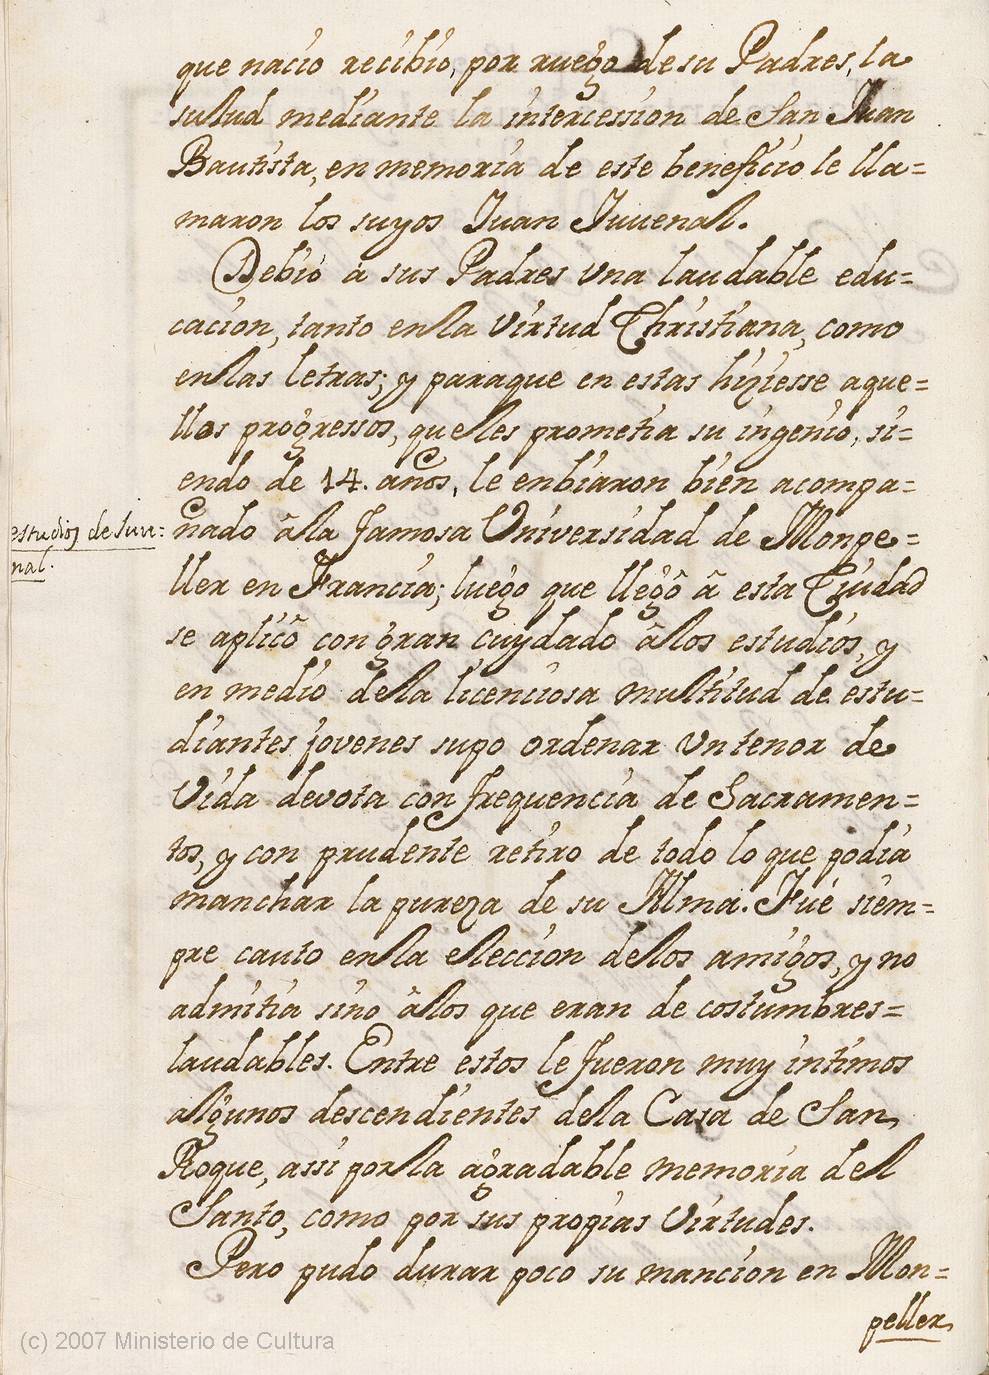 que nacio recibio, por ruego de su Padres, la
salud mediante la intercession de San Juan
Bautista, en memoria de este beneficio le lla=
maron los suyos Juan Juvenal.
Debio à sus Padres una laudable edu=
cacion, tanto en la virtud Christiana, como
en las letras; y paraque en estas hiziesse aque=
llos progressos, que les prometia su ingenio, si=
endo de 14. años, le enbiaron bien acompa=
estudios de Juve=
nal.
ñado â la famosa Universidad de Monpe=
ller en Francia; luego que llegô â esta Ciudad
se aplicô con gran cuydado â los estudios, y
en medio de la licenciosa multitud de estu=
diantes jovenes supo ordenar un tenor de
vida devota con frequencia de Sacramen=
tos, y con prudente retiro de todo lo que podia
manchar la pureza de su Alma. Fué siem=
pre cauto en la eleccion de los amigos, y no
admitia sino â los que eran de costumbres=
laudables. Entre estos le fueron muy intimos
algunos descendientes de la Casa de San
Roque, assi por la agradable memoria del
Santo, como por sus propias virtudes.
Pero pudo durar poco su mancion en Mon=
peller
(c) 2007 Ministerio de Cultura